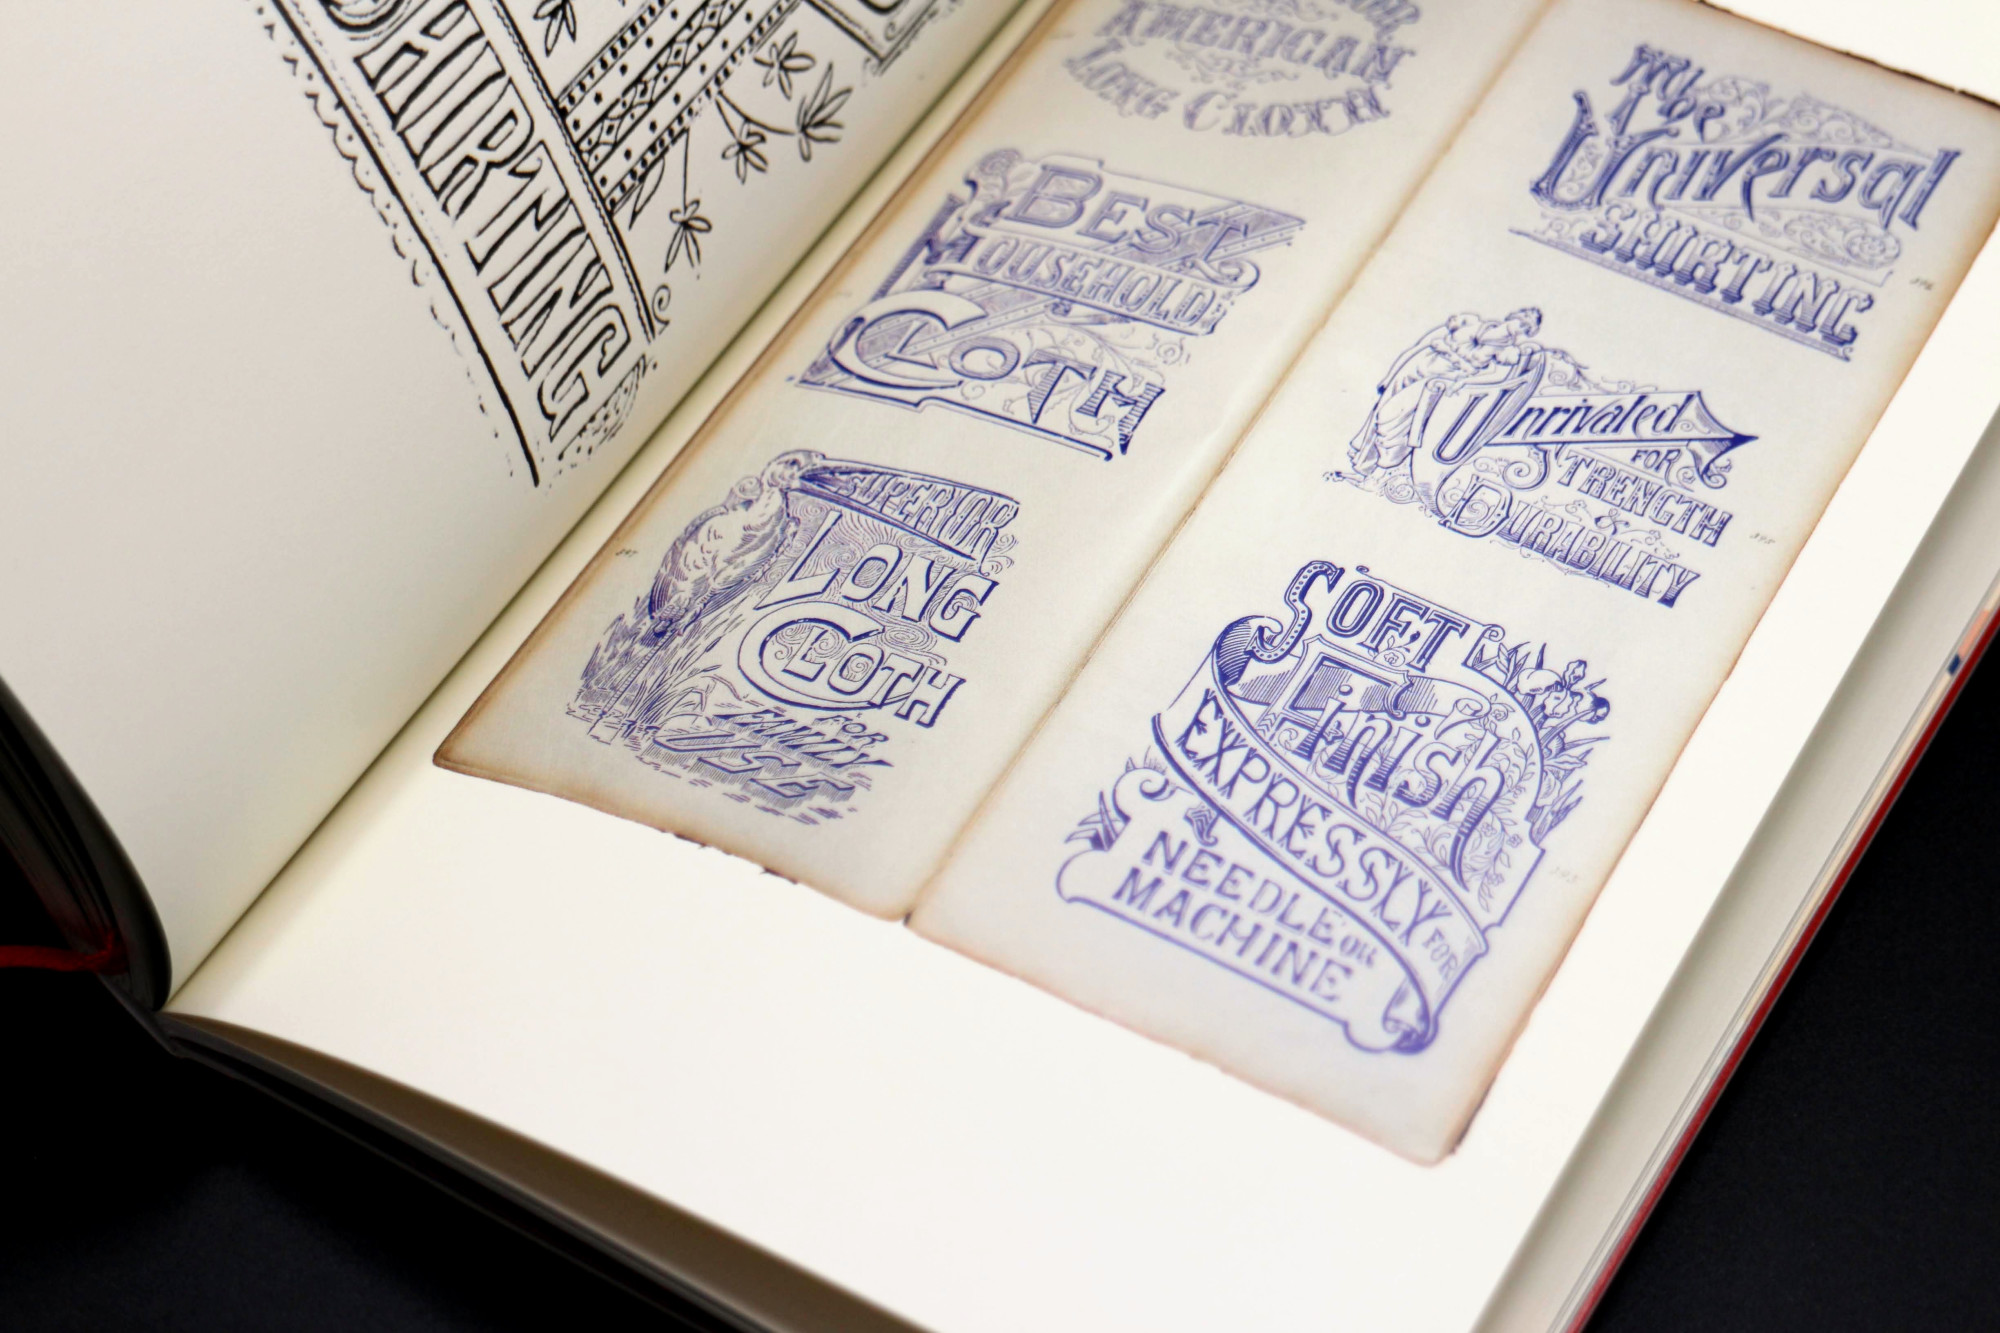 SHIRTING
AMERICAN
LONG CLOTH
BEST
HOUSEHOLD
CLOTH
SUPERIOR
LONG
CLOTH
FOR
FAMILY
USE
The
Universal
SHIRTING
Unrivaled
FOR
STRENGTH
&
DURABILITY
SOFT
Finish
EXPRESSLY FOR
NEEDLE OR
MACHINE